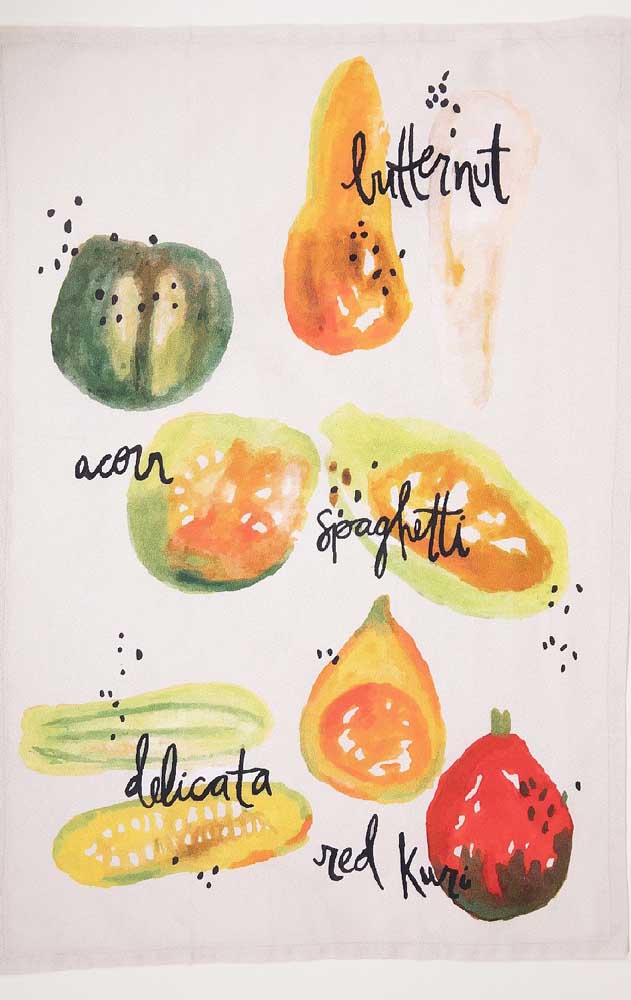 butternut
acorn
spaghetti
delicata
red Kuri